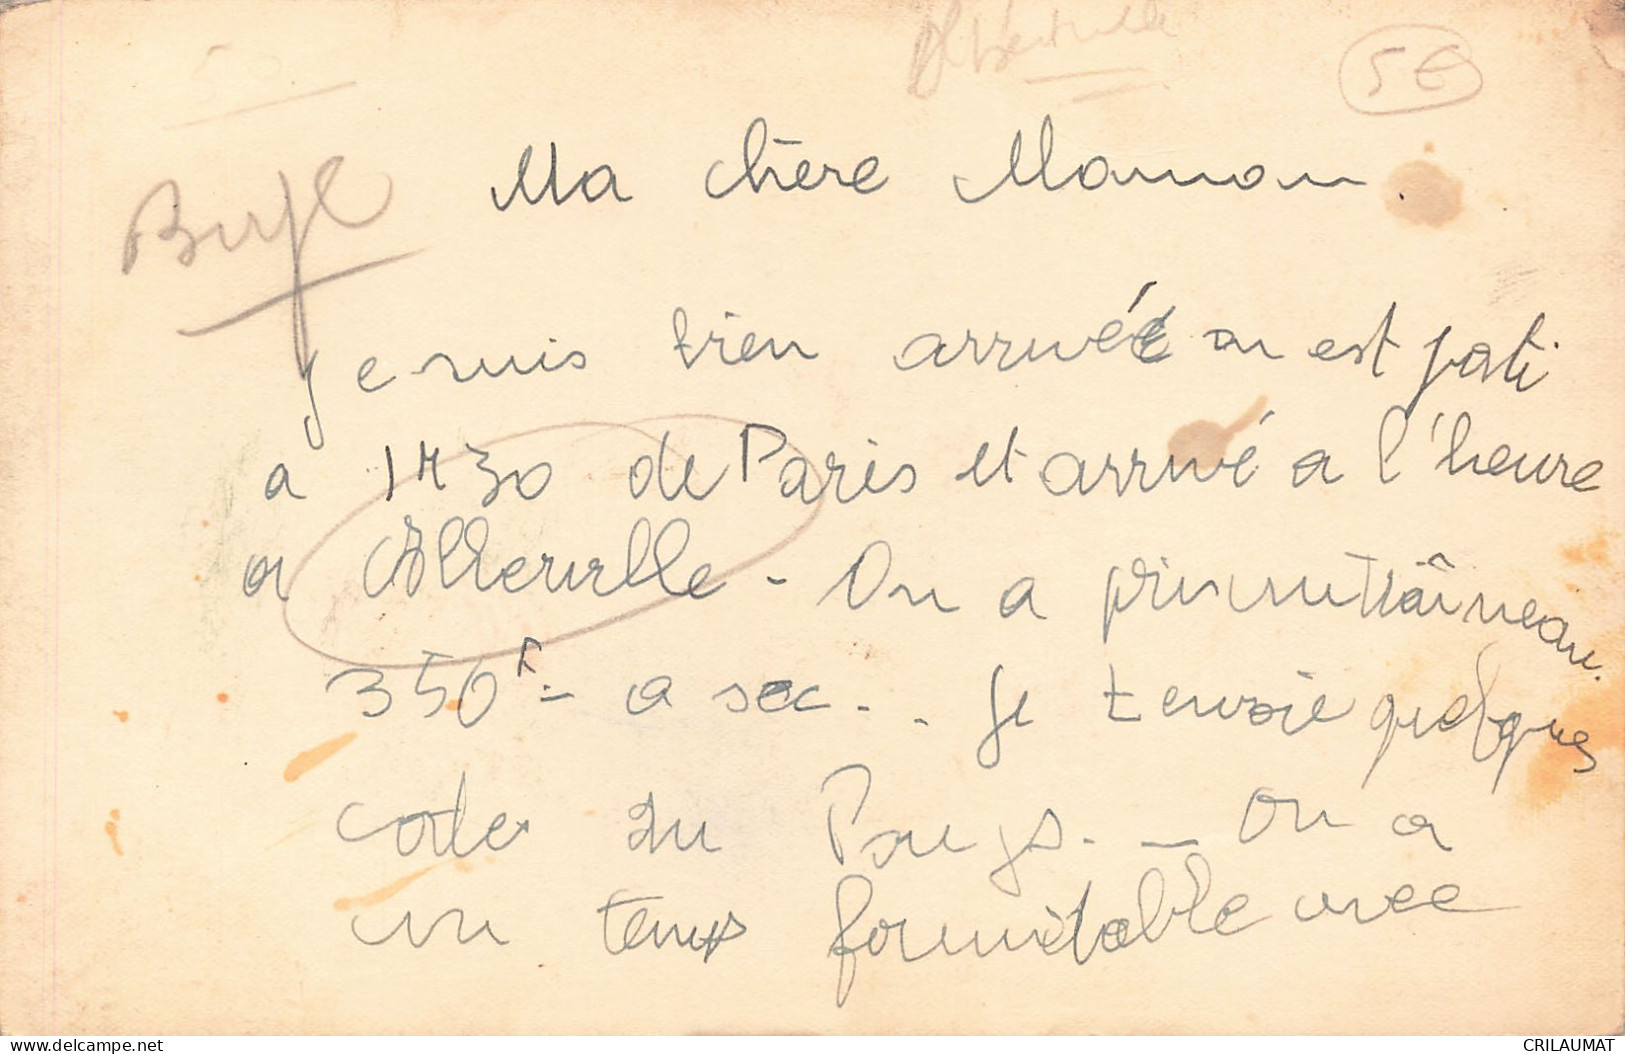 5€
Ma chère Maman.
Je suis bien arrivée on est pati
a 1H30 de Paris et arrivé a l'heure
a Albertville - On a pris un traîneau
350F - a sec.. Je t envoie quelques
cartes du Pays. - On a
un temps formidable avec
delcampe.net
CRILAUMAT